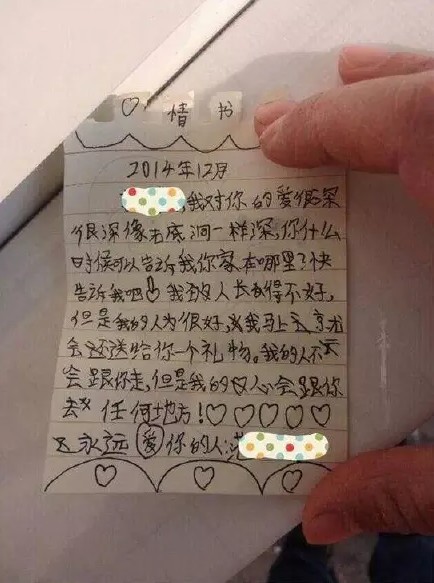 情书
2014年12月
,我对你的爱很深
很深像无底洞一样深,你什么
时候可以告诉我你家在哪里?快
告诉我吧 我的人长的得不好,
但是我的人为很好,我马上
会还送给你一个礼物。我的人不
会跟你走,但是我的心会跟你
去 任何地方!♡♡♡♡♡
永远爱你的人: